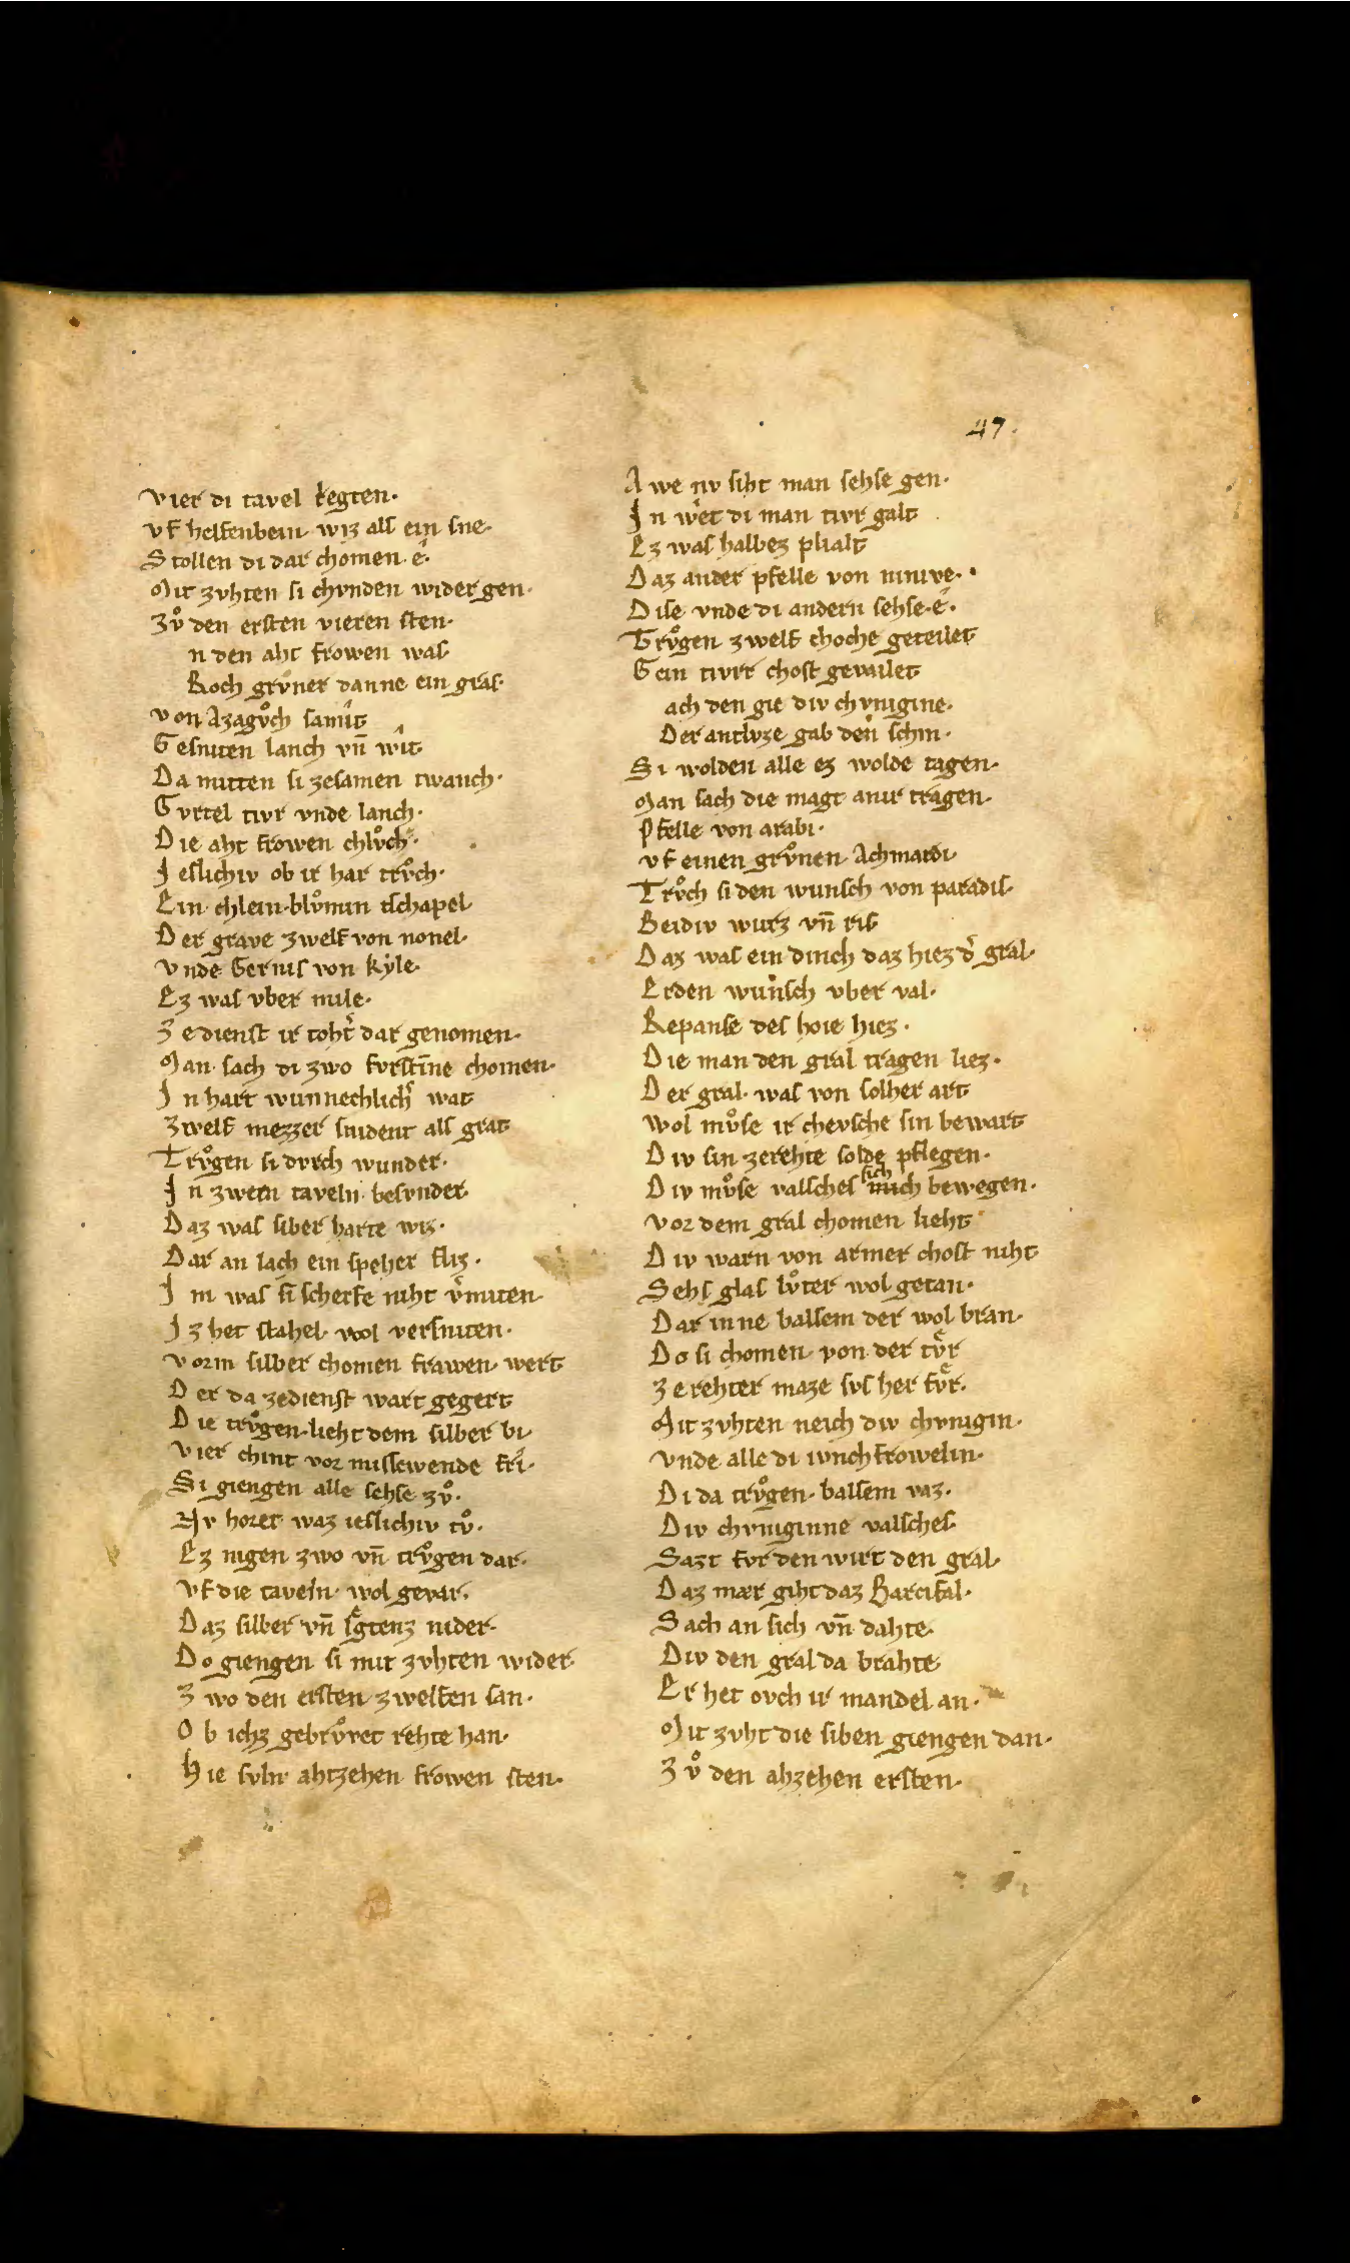 47.
vier di tavel legten·
vf helfenbein wiz alſ ein ſne·
Stollen di dar chomen· ê·
Mit zvhten ſi chvnden wider gen·
Zvͦ den erſten vieren ſten·
n den aht frowen waſ
Roch grvner danne ein graſ·
von Azagvͦch ſamît
Geſniten lanch vn̄ wît
Da mitten ſi zeſamen twanch·
Gvrtel tivr vnde lanch·
Die aht frowen chlvͦch·
Ieſlichiv ob ir har trvͦch·
Ein chlein blvͦmin tſchapel
Der grave zwelf von nonel·
vnde Gernis von kẏle·
Ez waſ vber mile·
Ze dienſt ir toht͛ dar genomen·
Man ſach di zwo fvrſtīne chomen·
In hart wunnechlich͛ wat
Zwelf mezzer ſnident alſ grat
Trvͦgen ſi dvrch wunder·
In zwein taveln beſvnder·
Daz waſ ſilber harte wiz·
Dar an lach ein ſpeher fliz·
Im waſ ſi ſcherfe niht v͛miten
Iz het ſtahel wol verſniten·
vorm ſilber chomen frawen wert
Der da zedienſt wart gegert
Die trvͦgen lieht dem ſilber bi·
vier chint vor miſſewende fri·
Si giengen alle ſehſe zvͦ·
Nv horet waz ieſlichiv tvͦ·
Ez nigen zwo vn̄ trvͦgen dar·
vf die taveln wol gevar·
Daz ſilber vn̄ leͤgtenz nider·
Do giengen ſi mit zvhten wider
Zwo den erſten zwelfen ſan·
Ob ichz gebrvͦvet rehte han·
Hie ſvln ahtzehen frowen ſten·
Awe nv ſiht man ſehſe gen·
In wet di man tivr galt
Ez waſ halbez plialt
Daz ander pfelle von ninive·
Diſe vnde di andern ſehſe ê·
Trvͦgen zwelf choche geteilet
Gein tivrr choſt geveilet
ach den gie div chvnigine·
Der antlvze gab den ſchin·
Si wolden alle ez wolde tagen·
Man ſach die magt anir tragen·
Pfelle von arabi·
vf einen grvͦnen Achmardi
Trvͦch ſi den wunſch von paradiſ·
Beidiv wurz vn̄ riſ
Daz waſ ein dinch daz hiez d͛ gral·
Erden wunſch vber val·
Repanſe deſ hoie hiez·
Die man den gral tragen liez·
Der gral waſ von ſolher art
Wol mvͦſe ir chevſche ſin bewart
Div ſin zerehte ſolde pflegen·
Div mvͦſe valſcheſ ſich bewegen·
vor dem gral chomen lieht
Div warn von armer choſt niht
Sehſ glaſ lvͦter wol getan·
Dar inne balſem der wol bran·
Do ſi chomen von der tvͤr
Zerehter maze ſvſ her fvͤr·
Mit zvhten neich div chvnigin·
vnde alle di ivnchfrowelin·
Di da trvͦgen balſem vaz·
Div chvniginne valſcheſ
Sazt fvr den wirt den gral·
Daz mær giht daz Parcifal·
Sach an ſich vn̄ dahte·
Div den gral da brahte
Er het ovch ir mandel an·
Mit zvht die ſiben giengen dan·
Zvͦ den ahzehen erſten·